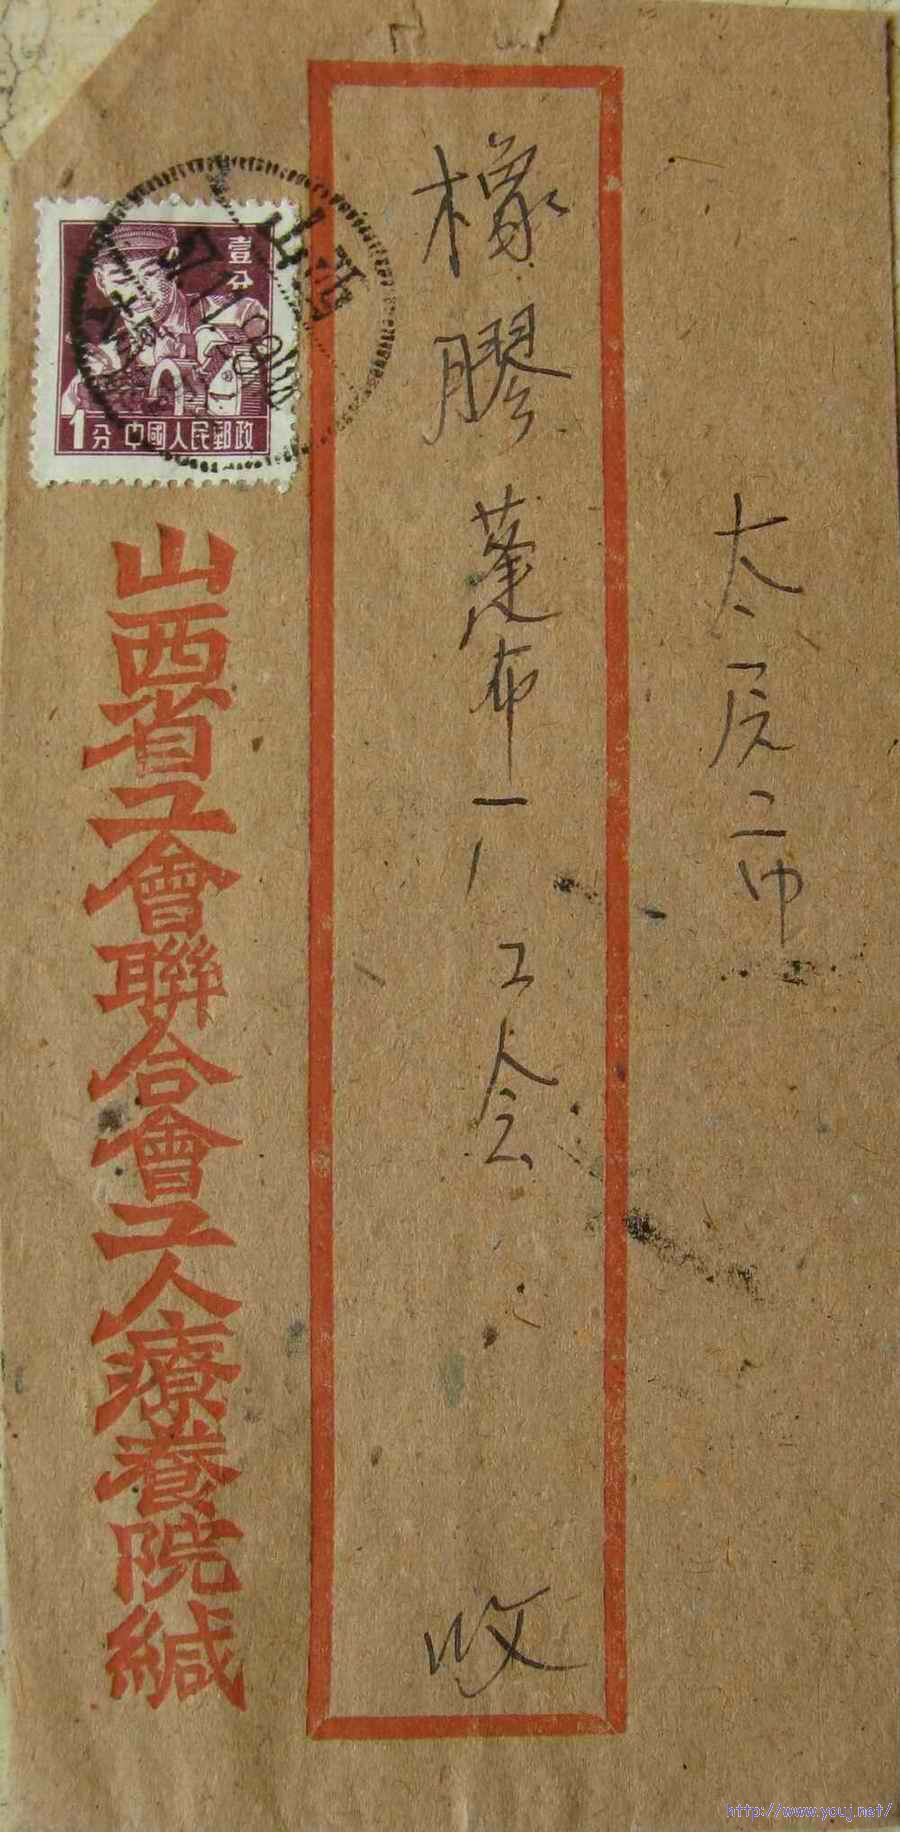 太原市
橡膠蓬布厂工会 收
壹分
1分 中國人民郵政
山西
山西省工會聯合會工人療養院緘
http://www.youj.net/